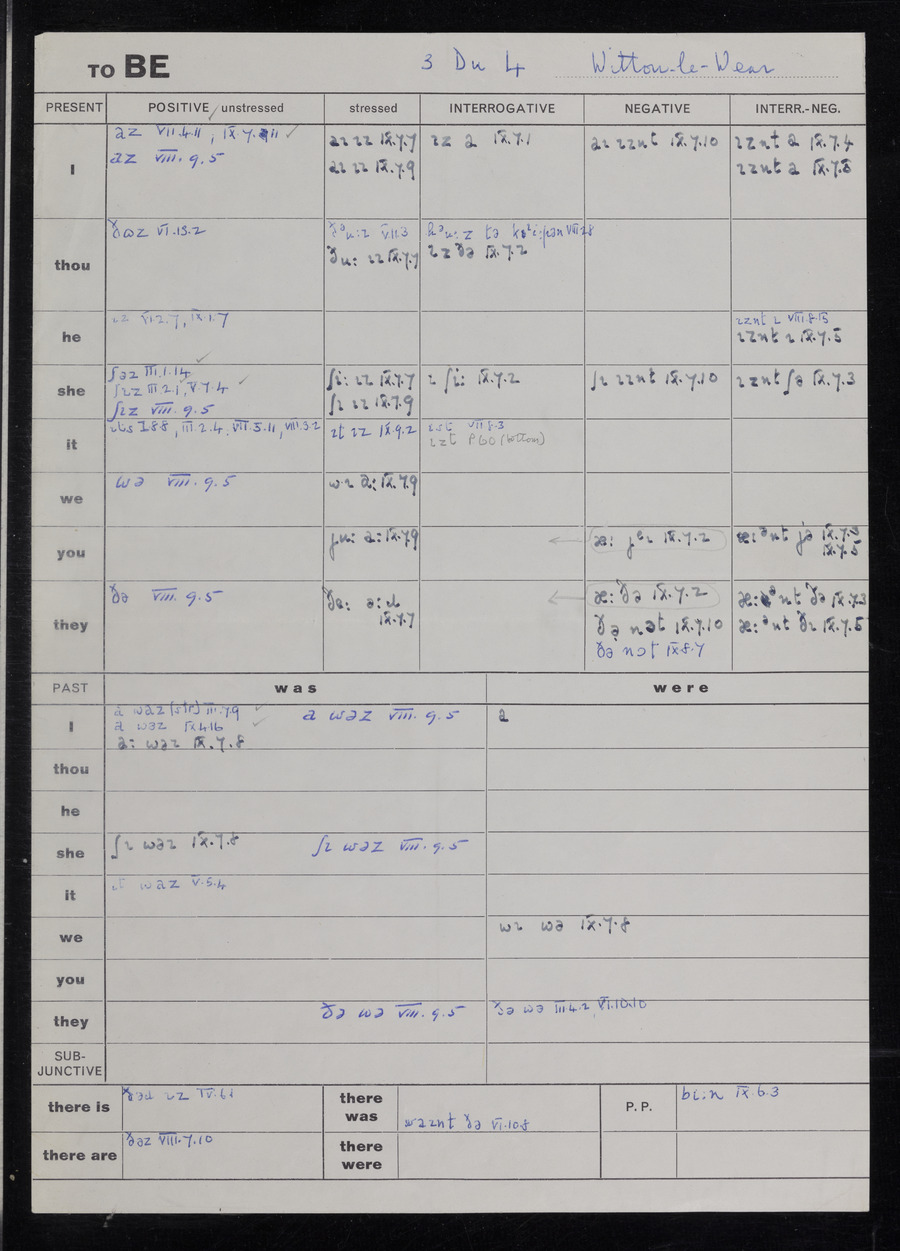 TO BE 3 Du 4 Witton-le-Wear
PRESENT POSITIVE / unstressed stressed INTERROGATIVE NEGATIVE INTERR.-NEG.
I az VII.4.11, IX.7.11 ✓ aɪ ɪz IX.7.7 ɪz a IX.7.1 aɪ ɪznt IX.7.10 ɪznt a IX.7.4
az VIII.9.5 aɪ ɪz IX.7.9 ɪznt a IX.7.5
thou VI.13.2 VII.3
ðu: ɪz IX.7.7 ɪz ðə IX.7.2
he ɪz VI.2.7, IX.1.7 ɪznt ɪ VIII.8.13
ɪznt ɪ IX.7.5
she ʃəz III.1.14 ✓ ʃi: ɪz IX.7.7 ɪ ʃi: IX.7.2 ʃɪ ɪznt IX.7.10 ɪznt ʃə IX.7.3
ʃɪz III.2.1, V.7.4 ✓ ʃɪ ɪz IX.7.9
ʃɪz VIII.9.5
it ɪts I.8.8, III.2.4, VII.5.11, VIII.3.2 ɪt ɪz IX.9.2 VII.8.3
ɪzt P60 (bottom)
we wə VIII.9.5 wɪ a: IX.7.9
you ju: a: IX.7.9 IX.7.2 æ:ənt jə IX.7.3
IX.7.5
they ðə VIII.9.5 IX.7.7 æ: ðə IX.7.2 æ:ənt ðə IX.7.3
ðə nət IX.7.10 æ:ənt ðɪ IX.7.5
ðə nɔt IX.8.7
PAST was were
I a waz (str) III.7.9 ✓ a wəz VIII.9.5 a
a wəz IX.4.16 ✓
a: wəz IX.7.8
thou
he
she ʃɪ wəz IX.7.8 ʃɪ wəz VIII.9.5
it ɪt waz V.5.4
we wɪ wə IX.7.8
you
they ðə wə VIII.9.5 ðə wə III.4.2, VI.10.10
SUB-
JUNCTIVE
there is ɪz IV.6.1 there was waznt ðə VI.10.8 P.P. bi:n IX.6.3
there are ðəz VIII.7.10 there were